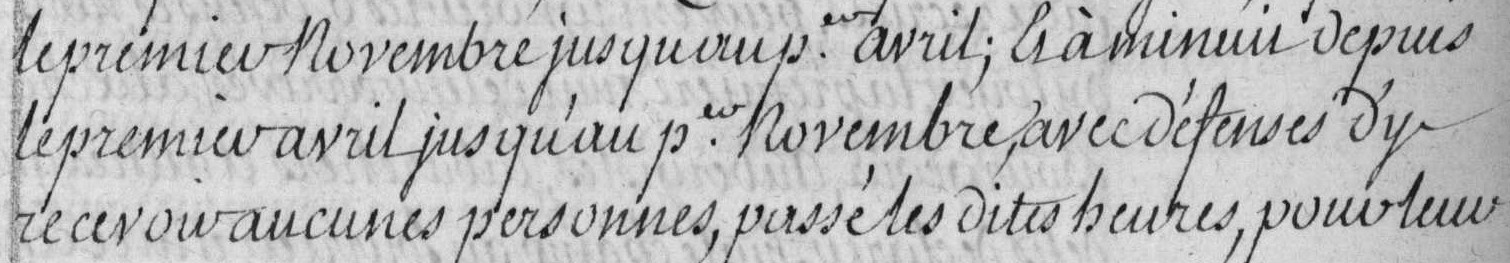 le premier Novembre jusqu'au p.er avril; Et à minuit depuis
le premier avril jusqu'au p.er Novembre, avec défenses d'y
recevoir aucunes personnes, passé les dites heures, pour leur